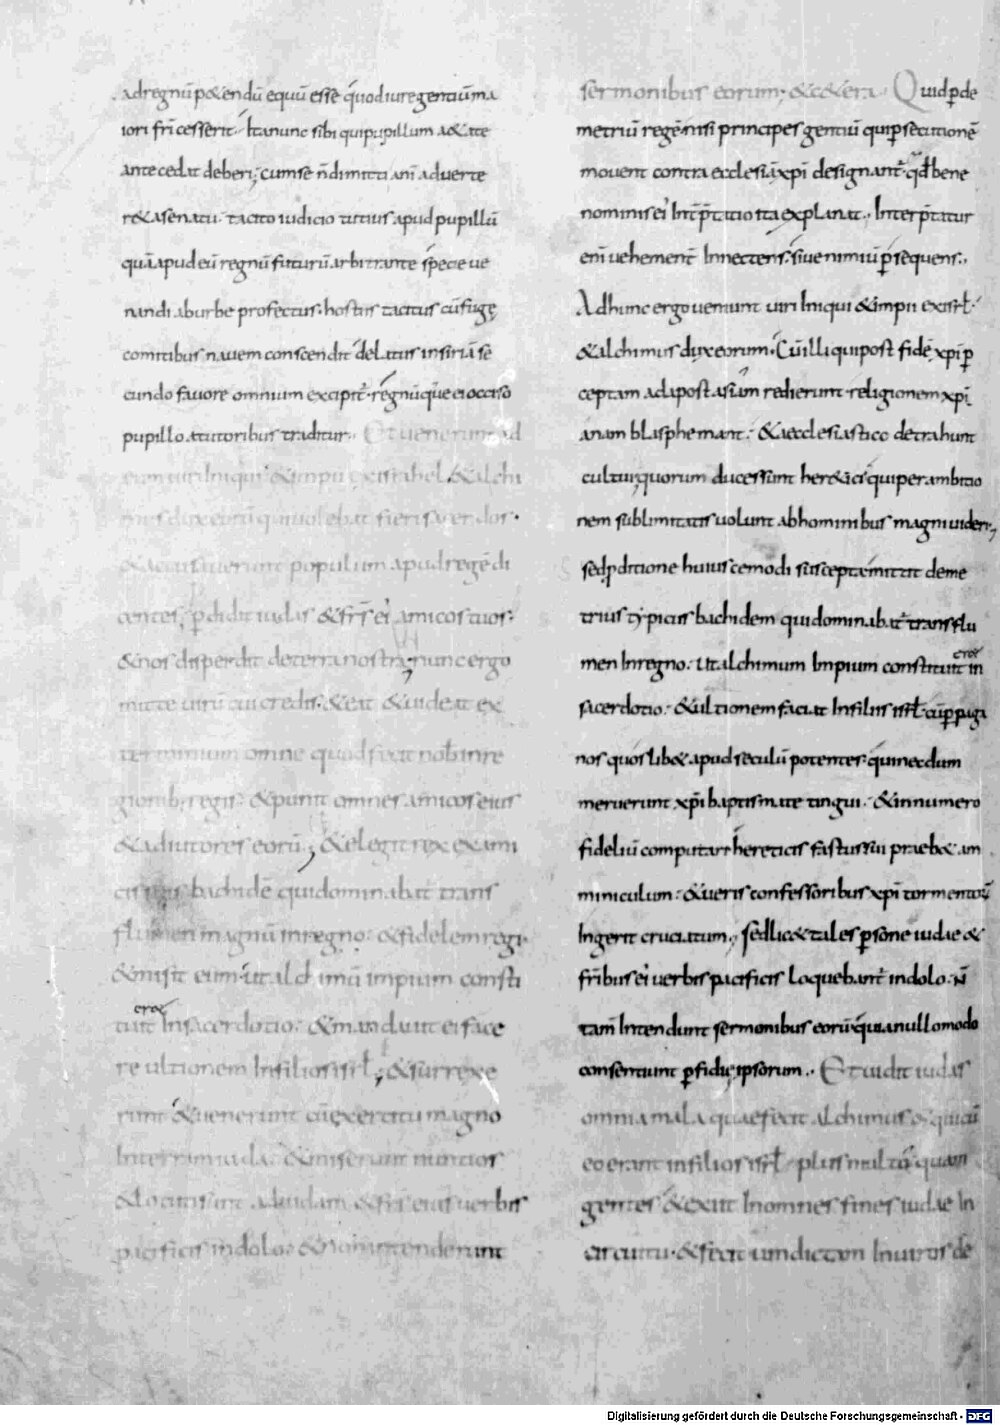 adregnū pet&endū equū esse quodiuregentiū ma
iori fr̄i cesserit. Ita nunc sibi qui pupillum a&ate
antecedat deberi; cum se n̄dimitti ani aduerte
r& asenatu. tacito iudicio tutius apud pupillū
quā apud eū regnū futurū arbitrante specie ue
nandi aburbe profectus. hostiis tacitus cū fugę
comitibus nauem conscendit delatus insiriā se
cundo fauore omnium excipit̄. regnūque ei occiso
pupillo atutoribus traditur.. Et uenerunt ad
eum uiri iniqui & impii exisrahel, & alchi
mus dux eorū qui uolebat fieri sacerdos.
& accusauerunt populum apud regē di
centes, p̄didit iudas & fr̄s ei amicos tuos.
& nos disperdit deterra nostra; nunc ergo
mitte uirū cui credis. & eat & uideat ex
terminium omne quod fecit nob inre
gionib; regis. & punit omnes amicos eius
& adiutores eorū; & elegit rex exami
cis suis bachidē qui dominabat̄ trans
flumen magnū inregno. & fidelem regi.
& misit eum ut alchimū impium consti
eror
tuit Insacerdotio. & mandauit ei face
re ultionem Infilios isrl; & surrexe
runt & uenerunt cū exercitu magno
Interram iuda. & miserunt nuntios
& locuti sunt adiudam & fr̄s eius uerbis
pacificis indolo. & non intenderunt
sermonibus eorum; & c&era. Quid p̄ de
metriū regē nisi principes gentiū qui p̄secutionē
mouent contra ecclesiā xp̄i designant̄. qd bene
nominis ei Int̄p̄tatio ita explanat.. Interp̄tatur
enī uehement̄ Innectens. siue nimiū p̄sequens..
Adhunc ergo ueniunt uiri Iniqui & impii exisrl.
& alchimus dux eorum. Cū illi qui post fidē xp̄i p̄
ceptam ad apostasiam redierunt. religionem xp̄i
anam blasphemant. & aecclesiastico detrahunt
cultui; quorum duces sunt her&ici qui per ambitio
nem sublimitatis uolunt abhominibus magni uideri;
sed p̄ditione huiuscemodi suscepta mittit deme
trius typicus bachidem qui dominabat̄ trans flu
eror
men Inregno. Ut alchimum Impium constituit in
sacerdotio. & ultionem faciat Infiliis isrl. cū p̄ paga
nos quos lib& apud seculū potentes. qui necdum
meruerunt xp̄i baptismate tingui. & innumero
fideliū computari hereticis fastus sui praebeant am
miniculum. & ueris confessoribus xp̄i tormentorū
Ingerit cruciatum., sed lic& tales p̄sone iudae &
fr̄ibus ei uerbis pacificis loquebant̄ indolo. n̄
tam̄ Intendunt sermonibus eorū. quia nullo modo
consentiunt p̄fidię ipsorum.. Et uidit iudas
omnia mala quae fecit alchimus & qui cū
eo erant infilios isrl. plus multū quam
gentes & exiit Inomnes fines iudae In
circuitu. & fecit uindictam Inuiros de
Digitalisierung gefördert durch die Deutsche Forschungsgemeinschaft - DFG